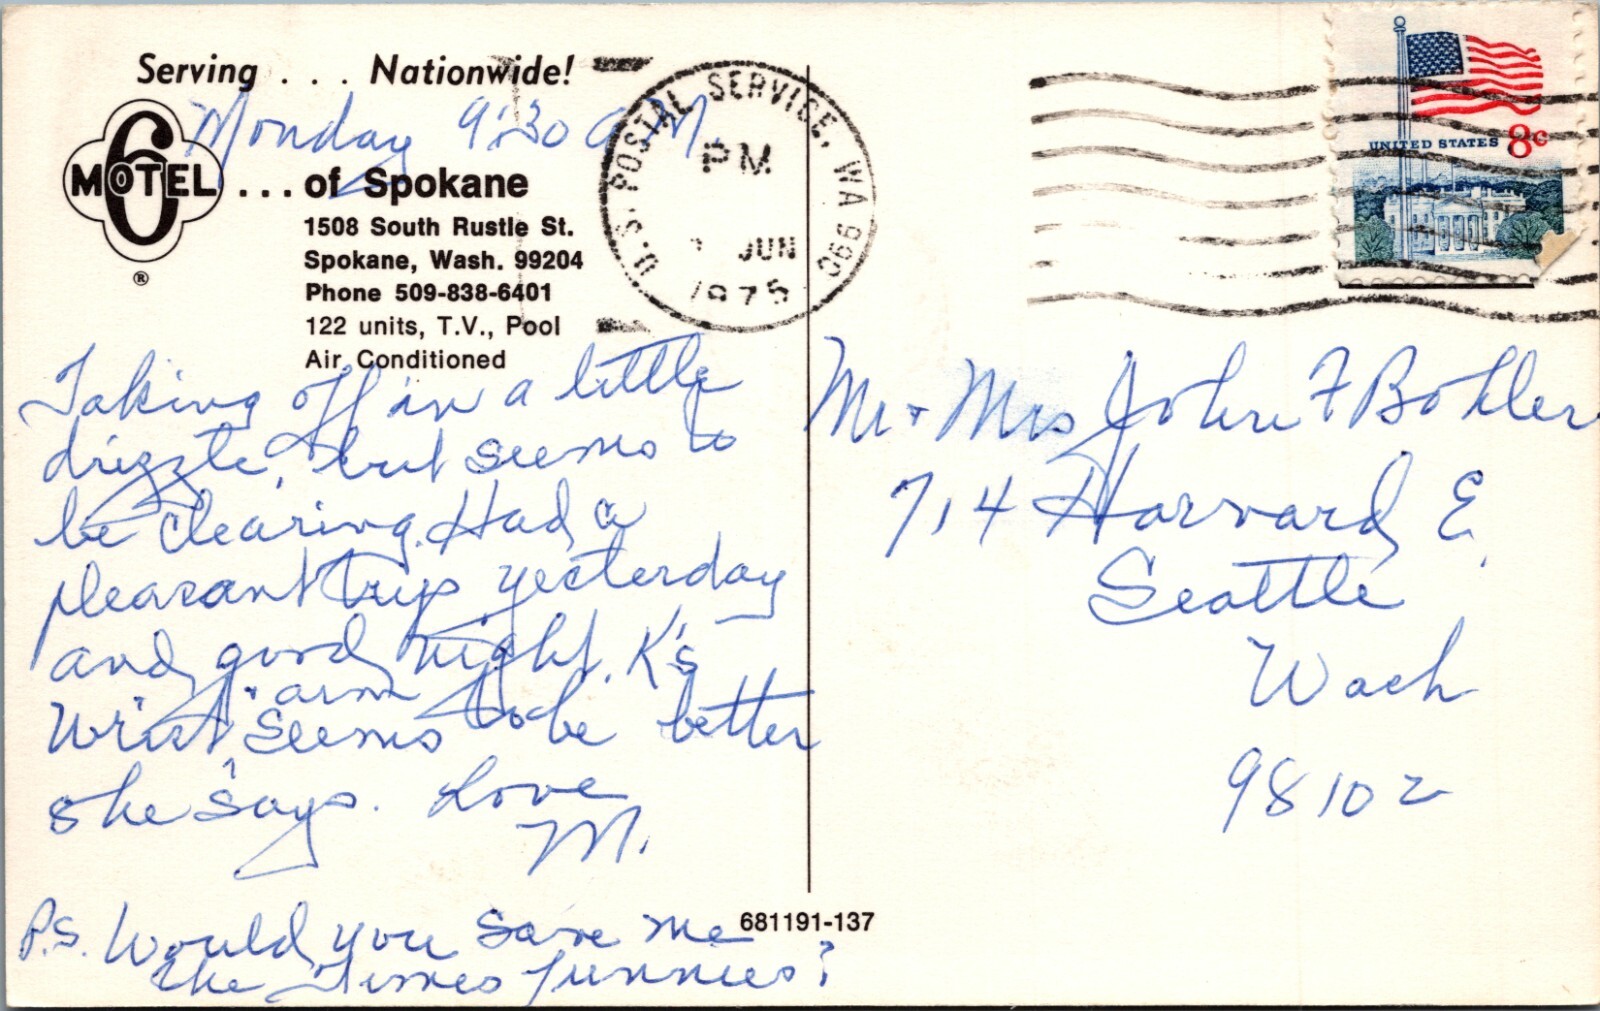 Serving . . . Nationwide!
Monday 9:30 A.M.
MOTEL 6 ... of Spokane
®
1508 South Rustle St.
Spokane, Wash. 99204
Phone 509-838-6401
122 units, T.V., Pool
Air Conditioned
Taking off in a little
drizzle, but seems to
be clearing. Had a
pleasant trip yesterday
and good night. K's
"arm
wrist, seems to be better
she says. Love
M.
P.S. Would you save me
the Times funnies?
681191-137
U.S. POSTAL SERVICE, WA 990
PM
JUN
1975
UNITED STATES 8c
Mr + Mrs John F Bohler
714 Harvard E.
Seattle
Wash
98102